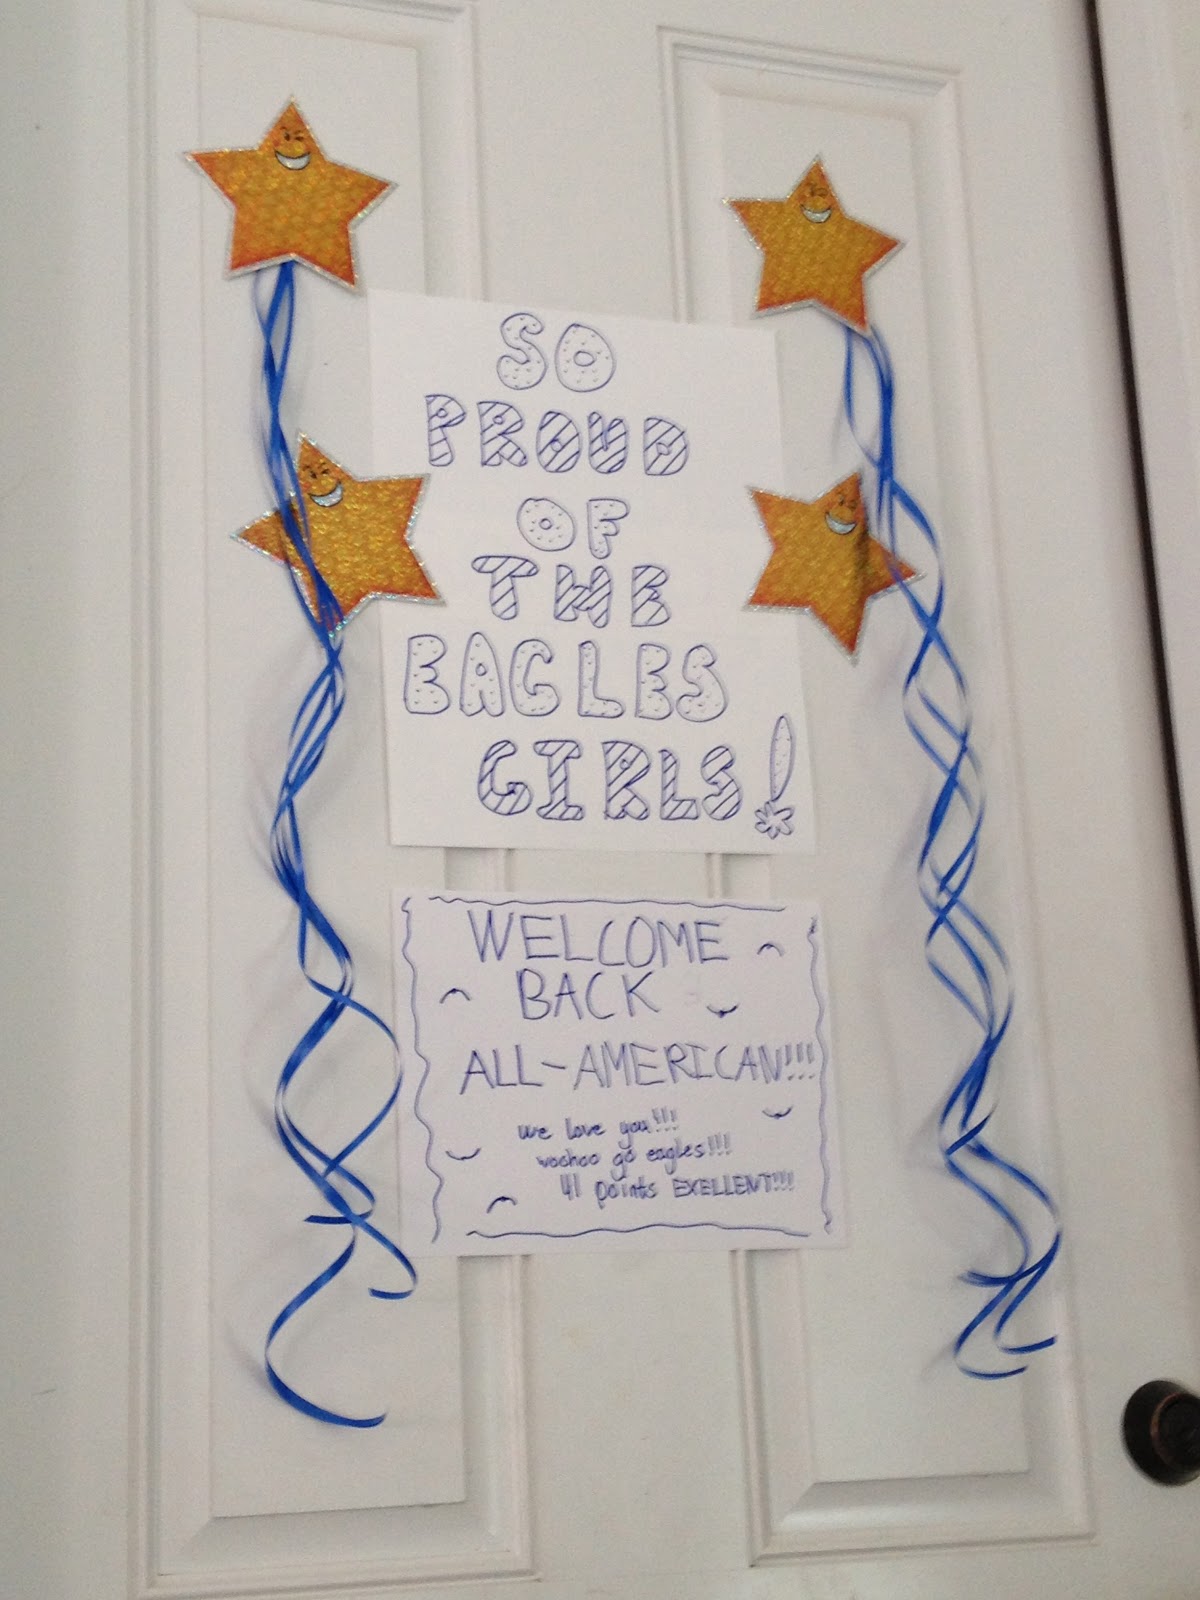 SO
PROUD
OF
THE
EAGLES
GIRLS!
WELCOME
BACK
ALL-AMERICAN!!!
we love you!!!
woohoo go eagles!!!
41 points EXELLENT!!!